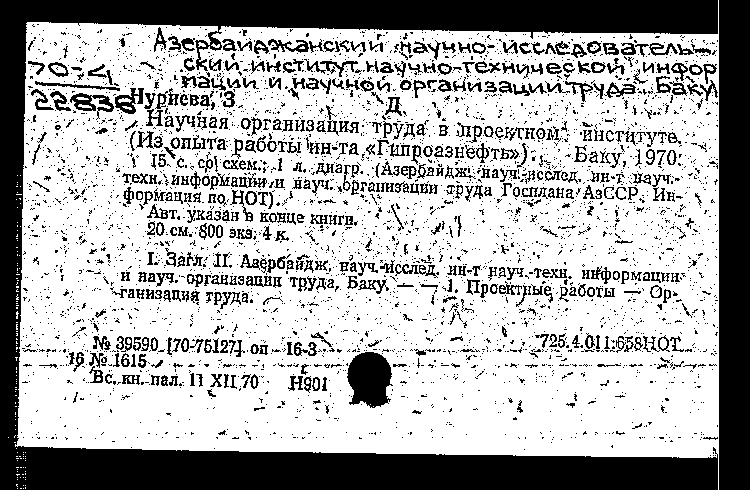 Азербайджанский научно-исследователь-
ский институт научно-технической инфор
мации и научной организации труда. Баку
70-4
22836
Нуриева, З
Д
Научная организация труда в проектном институте.
(Из опыта работы ин-та «Гипроазнефть»). Баку, 1970.
15 с. со схем.; 1 л. диагр. (Азербайдж. науч.-исслед. ин-т науч.-
техн. информации и науч. организации труда Госплана АзССР. Ин-
формация по НОТ).
Авт. указан в конце книги.
20 см. 800 экз. 4 к.
I. Загл. II. Азербайдж. науч.-исслед. ин-т науч.-техн. информации
и науч. организации труда, Баку. — — 1. Проектные работы — Ор-
ганизация труда.
№ 39590 [70-75127] оп 16-3
725.4.011:658НОТ
16 № 1615
Вс. кн. пал. 11 XII 70 Н901